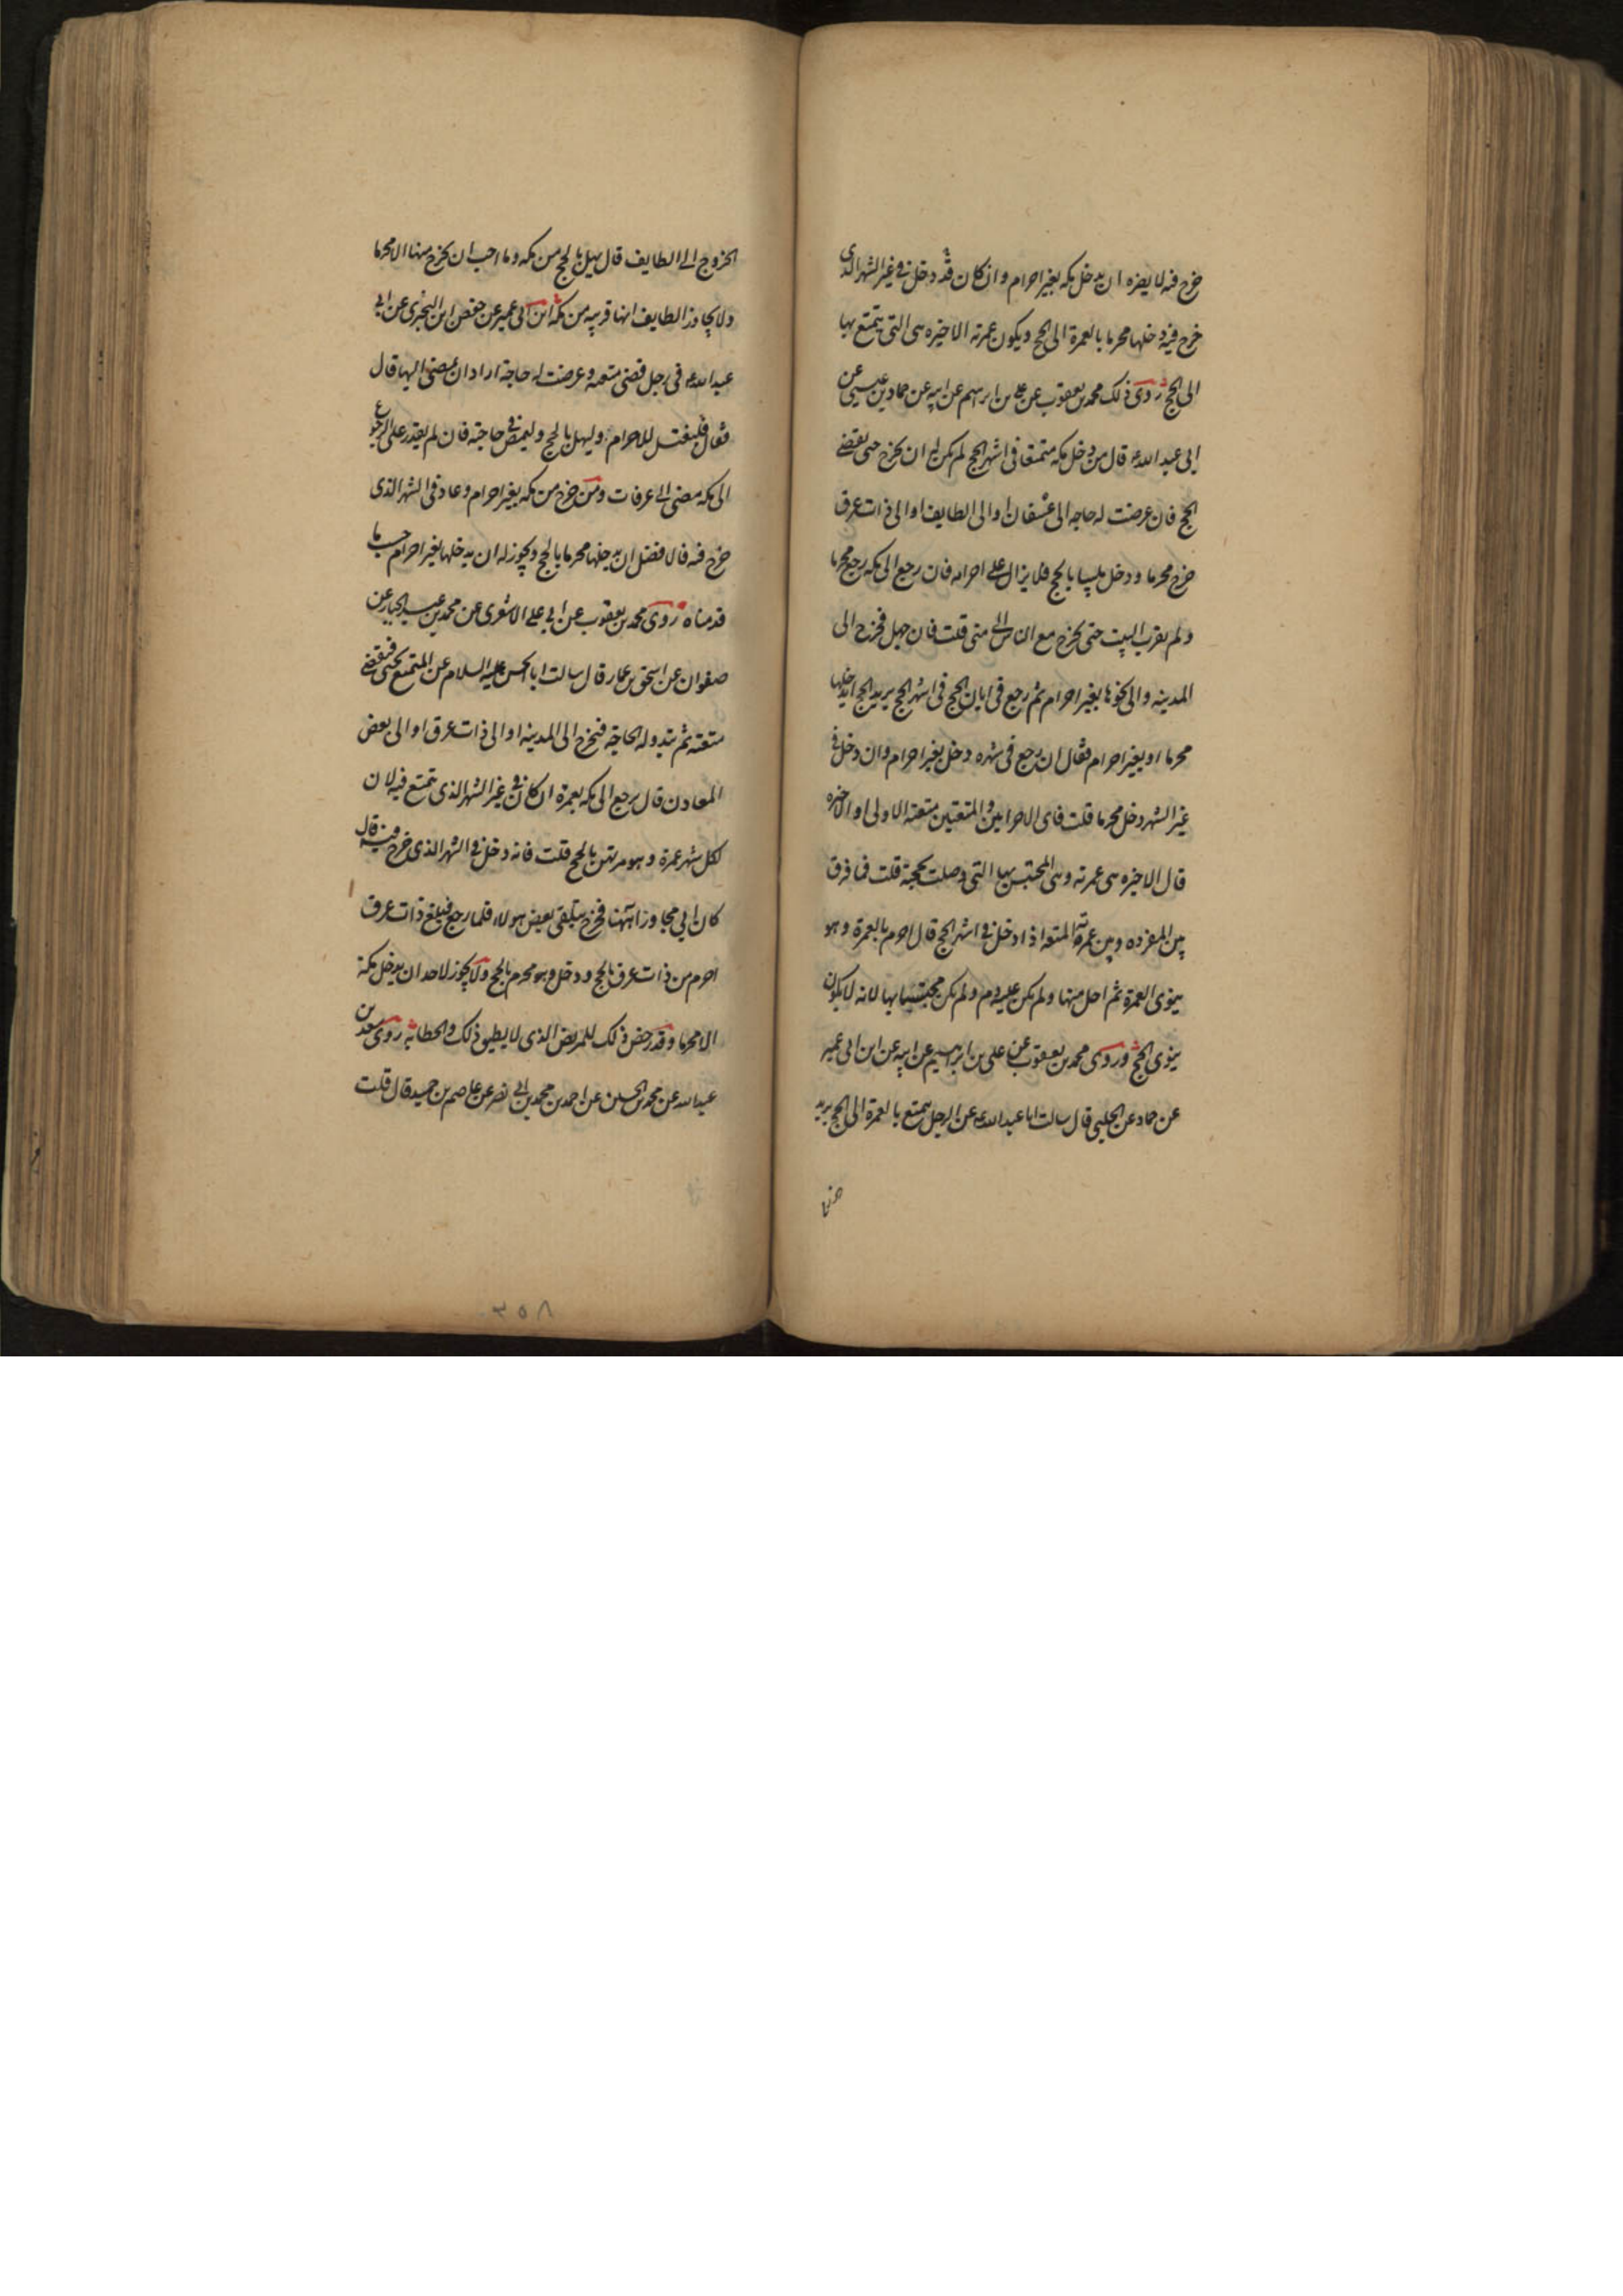 خرج فيه لا يضره ان يدخل مكه بغير احرام وان كان قد دخل في غير الشهر الذي
خرج فيه دخلها محرما بالعمرة الى الحج ويكون عمرته الاخيره هى التى يتمتع بها
الى الحج روى ذلك محمد بن يعقوب عن على بن ابرهيم عن ابيه عن حماد بن عيسى عن
ابى عبد الله ع قال من دخل مكه متمتعا فى اشهر الحج لم يكن له ان يخرج حتى يقضى
الحج فان عرضت له حاجه الى عسفان او الى الطايف او الى ذات عرق
خرج محرما ودخل ملبيا بالحج فلا يزال على احرامه فان رجع الى مكه رجع محرما
ولم يقرب البيت حتى يخرج مع الناس الى منى قلت فان جهل فخرج الى
المدينه والى نحوها بغير احرام ثم رجع فى ابان الحج فى اشهر الحج يريد الحج ايدخلها
محرما او بغير احرام فقال ان رجع فى شهره دخل بغير احرام وان دخل فى
غير الشهر دخل محرما قلت فاى الاحرامين والمتعتين متعته الاولى او الاخيره
قال الاخيره هى عمرته وهى المحتبس بها التى وصلت بحجة قلت فما فرق
بين المفرده وبين عمرة المتعه اذا دخل في اشهر الحج قال احرم بالعمرة وهو
ينوى العمرة ثم احل منها ولم يكن عليه دم ولم يكن محتبسا بها لانه لا يكون
ينوى الحج وروى محمد بن يعقوب عن على بن ابرهيم عن ابيه عن ابن ابى عمير
عن حماد عن الحلبى قال سالت ابا عبد الله ع عن الرجل يتمتع بالعمرة الى الحج يريد
الخروج الى الطايف قال يهل بالحج من مكه وما احب ان يخرج منها الا محرما
ولا يجاوز الطايف انها قريبه من مكه ابن ابى عمير عن حفص ابن البخترى عن ابى
عبد الله ع فى رجل قضى متعته وعرضت له حاجة اراد ان يمضى اليها قال
فقال فليغتسل للاحرام وليهل بالحج وليمض فى حاجته فان لم يقدر على الرجوع
الى مكه مضى الى عرفات ومن خرج من مكه بغير احرام وعاد فى الشهر الذى
خرج فيه فالافضل ان يدخلها محرما بالحج ويجوز له ان يدخلها بغير احرام حسب ما
قدمناه روى محمد بن يعقوب عن ابى على الاشعرى عن محمد بن عبد الجبار عن
صفوان عن اسحق بن عمار قال سالت ابا الحسن عليه السلام عن المتمتع يجى فيقضى
متعته ثم تبدو له الحاجة فيخرج الى المدينه او الى ذات عرق او الى بعض
المعادن قال يرجع الى مكه بعمرة ان كان فى غير الشهر الذى تمتع فيه لان
لكل شهر عمرة وهو مرتهن بالحج قلت فانه دخل فى الشهر الذى خرج فيه قال
كان ابى مجاورا هيهنا فخرج يتلقى بعض هولاء فلما رجع فبلغ ذات عرق
احرم من ذات عرق بالحج ودخل وهو محرم بالحج ولا يجوز لاحد ان يدخل مكة
الا محرما وقد رخص ذلك للمريض الذى لا يطيق ذلك والحطابة روى سعد بن
عبد الله عن محمد بن الحسين عن احمد بن محمد بن ابى نصر عن عاصم بن حميد قال قلت
٣٥٨